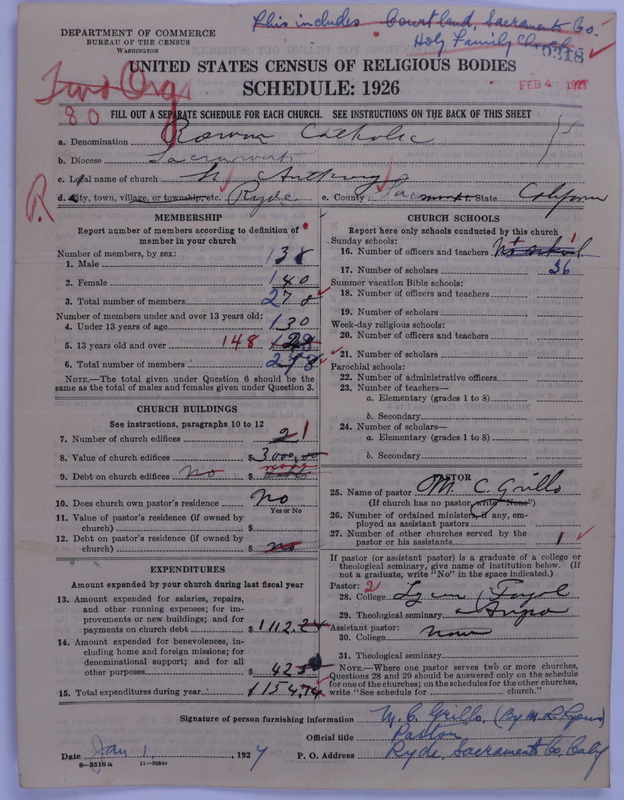 This includes Courtland, Sacramento Co.
Holy Family Church
DEPARTMENT OF COMMERCE
BUREAU OF THE CENSUS
WASHINGTON
UNITED STATES CENSUS OF RELIGIOUS BODIES
SCHEDULE: 1926
FEB 4 1927
Two Orgs
80
FILL OUT A SEPARATE SCHEDULE FOR EACH CHURCH. SEE INSTRUCTIONS ON THE BACK OF THIS SHEET
a. Denomination Roman Catholic
b. Diocese Sacramento
c. Local name of church St Anthony
d. City, town, village, or township, etc. Ryde e. County Sacramento State California
R.
MEMBERSHIP
Report number of members according to definition of member in your church
Number of members, by sex:
1. Male 138
2. Female 140
3. Total number of members 278
Number of members under and over 13 years old:
4. Under 13 years of age 130
5. 13 years old and over 148 128
6. Total number of members 278
NOTE.—The total given under Question 6 should be the same as the total of males and females given under Question 3.
CHURCH BUILDINGS
See instructions, paragraphs 10 to 12
7. Number of church edifices 2 1
8. Value of church edifices $3000.00
9. Debt on church edifices No $
10. Does church own pastor's residence No
Yes or No
11. Value of pastor's residence (if owned by church) $
12. Debt on pastor's residence (if owned by church) $ no
EXPENDITURES
Amount expended by your church during last fiscal year
13. Amount expended for salaries, repairs, and other running expenses; for improvements or new buildings; and for payments on church debt $1112.24
14. Amount expended for benevolences, including home and foreign missions; for denominational support; and for all other purposes $ 42.50
15. Total expenditures during year $1154.74
CHURCH SCHOOLS
Report here only schools conducted by this church
Sunday schools:
16. Number of officers and teachers No school 1
17. Number of scholars 36
Summer vacation Bible schools:
18. Number of officers and teachers
19. Number of scholars
Week-day religious schools:
20. Number of officers and teachers
21. Number of scholars
Parochial schools:
22. Number of administrative officers
23. Number of teachers—
a. Elementary (grades 1 to 8)
b. Secondary
24. Number of scholars—
a. Elementary (grades 1 to 8)
b. Secondary
PASTOR
25. Name of pastor M. C. Grillo
(If church has no pastor, write "None")
26. Number of ordained ministers, if any, employed as assistant pastors
27. Number of other churches served by the pastor or his assistants 1
If pastor (or assistant pastor) is a graduate of a college or theological seminary, give name of institution below. (If not a graduate, write "No" in the space indicated.)
Pastor: 2
28. College
29. Theological seminary
Assistant pastor:
30. College None
31. Theological seminary
NOTE.—Where one pastor serves two or more churches, Questions 28 and 29 should be answered only on the schedule for one of the churches; on the schedules for the other churches, write "See schedule for church."
Signature of person furnishing information M. C. Grillo, (By M. L. Lyons)
Official title Pastor
Date Jan 1, , 1927 P. O. Address Ryde, Sacramento Co. Calif
8—5518a 11—9034a